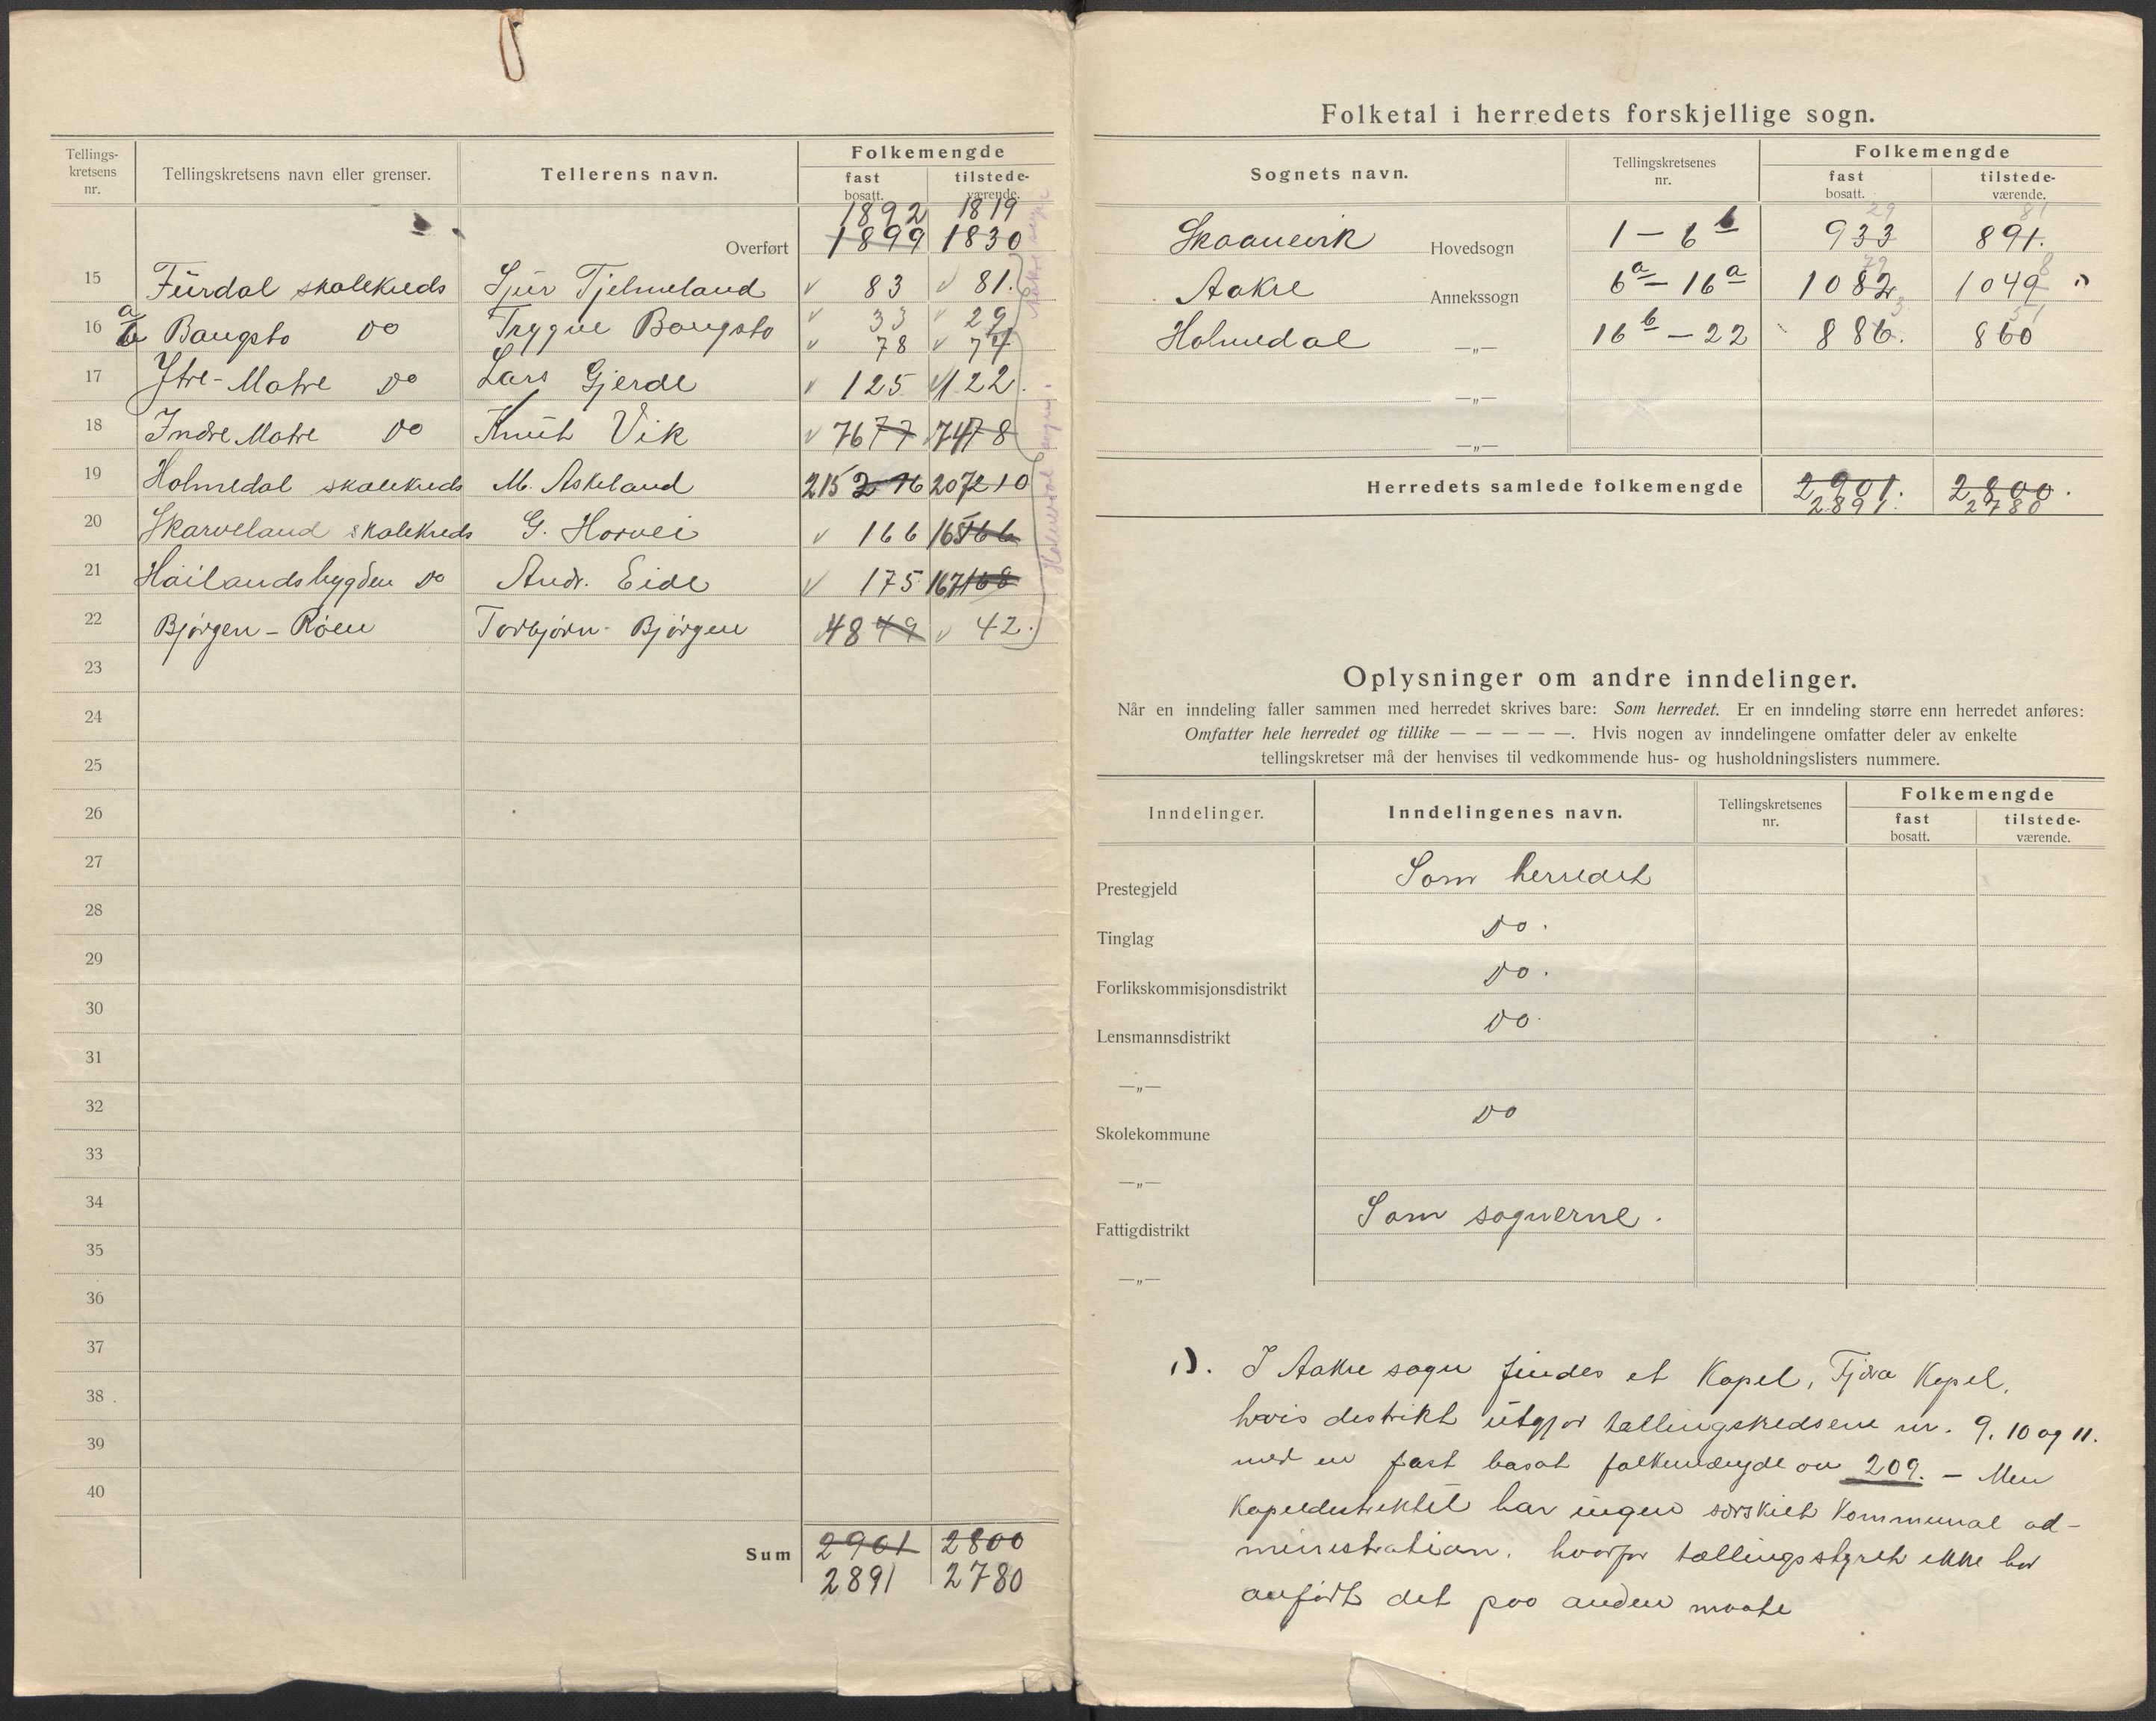 Tellings-
kretsens
nr.
Tellingskretsens navn eller grenser.
Tellerens navn.
Folkemengde
fast
bosatt.
tilstede-
værende.
1892 1819
Overført 1899 1830
15 Fürdal skolekreds Sjur Tjelmeland 83 81.
16 a Baugsto do Trygve Baugsto 33 29
b 78 74
17 Ytre-Matre do Lars Gjerde 125 122.
18 Indre Matre do Knut Vik 76 77 74 78
19 Holmedal skolekreds M. Askeland 215 216 207 210
20 Skarveland skolekreds G. Horvei 166 165 166
21 Høilandsbygden do Andr. Eide 175 167 168
22 Bjørgen - Røen Torbjørn Bjørgen 48 49 42.
23
24
25
26
27
28
29
30
31
32
33
34
35
36
37
38
39
40
Sum 2901 2800
2891 2780
Aakre sogn
Holmedal sogn.
Folketal i herredets forskjellige sogn.
Sognets navn.
Tellingskretsenes
nr.
Folkemengde
fast
bosatt.
tilstede-
værende.
29 81
Skaanevik Hovedsogn 1 - 6 b 933 891.
79 8
Aakre Annekssogn 6 a - 16 a 1082 1049 1)
3 51
Holmedal —„— 16 b - 22 886. 860
—„—
—„—
Herredets samlede folkemengde 2901. 2800.
2891. 2780
Oplysninger om andre inndelinger.
Når en inndeling faller sammen med herredet skrives bare: Som herredet. Er en inndeling større enn herredet anføres:
Omfatter hele herredet og tillike — — — — —. Hvis nogen av inndelingene omfatter deler av enkelte
tellingskretser må der henvises til vedkommende hus- og husholdningslisters nummere.
Inndelinger.
Inndelingenes navn.
Tellingskretsenes
nr.
Folkemengde
fast
bosatt.
tilstede-
værende.
Prestegjeld Som herredet
Tinglag do.
Forlikskommisjonsdistrikt do.
Lensmannsdistrikt do.
—„—
Skolekommune do
—„—
Fattigdistrikt Som sognerne.
—„—
1). I Aakre sogn findes et Kapel, Kapel,
hvis distrikt utgjør tællingskredsene nr. 9. 10 og 11.
med en fast bosat folkemængde av 209. - Men
Kapeldistriktet har ingen særskilt Kommunal ad-
ministration, hvorfor tællingsstyret ikke har
anført det paa anden maate